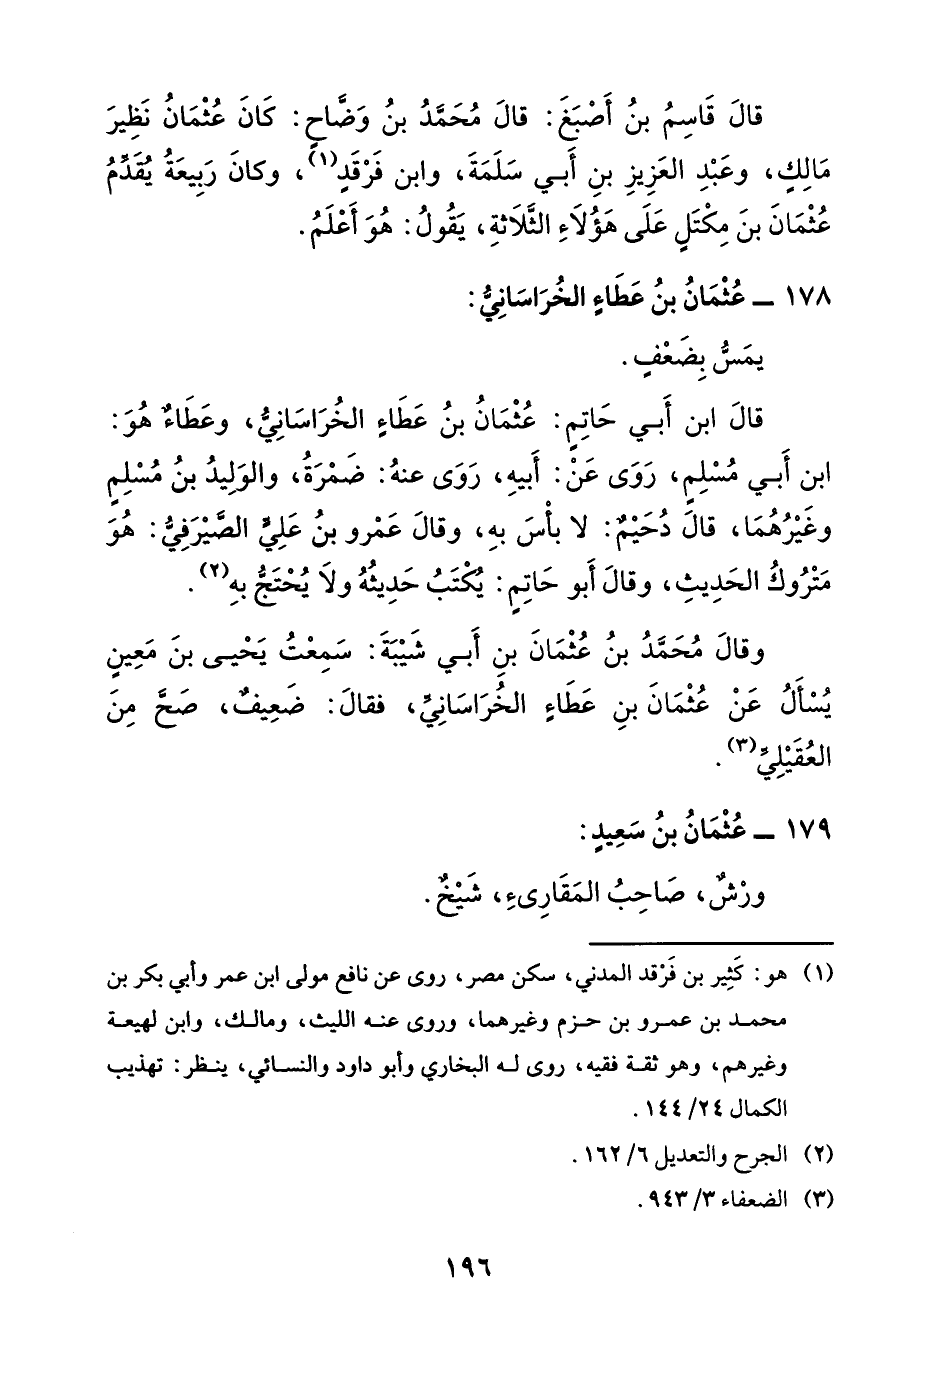 قالَ قَاسِمُ بنُ أَصْبَغَ: قالَ مُحَمَّدُ بنُ وَضَّاحٍ: كَانَ عُثْمَانُ نَظِيرَ
مَالِكٍ، وعَبْدِ العَزِيزِ بنِ أَبي سَلَمَةَ، وابن فَرْقَدٍ(١)، وكانَ رَبِيعَةُ يُقَدِّمُ
عُثْمَانَ بنَ مِكْتَلٍ عَلَى هَؤُلاَءِ الثَّلَاثةِ، يَقُولُ: هُوَ أَعْلَمُ.
١٧٨ ــ عُثْمَانُ بنُ عَطَاءٍ الخُرَاسَانِيُّ:
يمَسُّ بِضَعْفٍ.
قالَ ابن أَبي حَاتِمٍ: عُثْمَانُ بنُ عَطَاءٍ الخُرَاسَانِيُّ، وعَطَاءٌ هُوَ:
ابن أَبي مُسْلِمٍ، رَوَى عَنْ: أَبيهِ، رَوَى عنهُ: ضَمْرَةُ، والوَلِيدُ بنُ مُسْلِمٍ
وغَيْرُهُمَا، قالَ دُحَيْمٌ: لا بأْسَ بهِ، وقالَ عَمْرو بنُ عَلِيٍّ الصَّيْرَفِيُّ: هُوَ
مَتْرُوكُ الحَدِيثِ، وقالَ أَبو حَاتِمٍ: يُكْتَبُ حَدِيثُهُ ولاَ يُحْتَجُّ بهِ(٢).
وقالَ مُحَمَّدُ بنُ عُثْمَانَ بنِ أَبي شَيْبَةَ: سَمِعْتُ يَحْيى بنَ مَعِينٍ
يُسْأَلُ عَنْ عُثْمَانَ بنِ عَطَاءٍ الخُرَاسَانِيِّ، فقالَ: ضَعِيفٌ، صَحَّ مِنَ
العُقَيْلِيِّ(٣).
١٧٩ ــ عُثْمَانُ بنُ سَعِيدٍ:
ورْشٌ، صَاحِبُ المَقَارِىءِ، شَيْخٌ.
(١) هو: كَثِير بن فَرْقد المدني، سكن مصر، روى عن نافع مولى ابن عمر وأبي بكر بن
محمد بن عمرو بن حزم وغيرهما، وروى عنه الليث، ومالك، وابن لهيعة
وغيرهم، وهو ثقة فقيه، روى له البخاري وأبو داود والنسائي، ينظر: تهذيب
الكمال ٢٤/ ١٤٤.
(٢) الجرح والتعديل ٦/ ١٦٢.
(٣) الضعفاء ٣/ ٩٤٣.
١٩٦